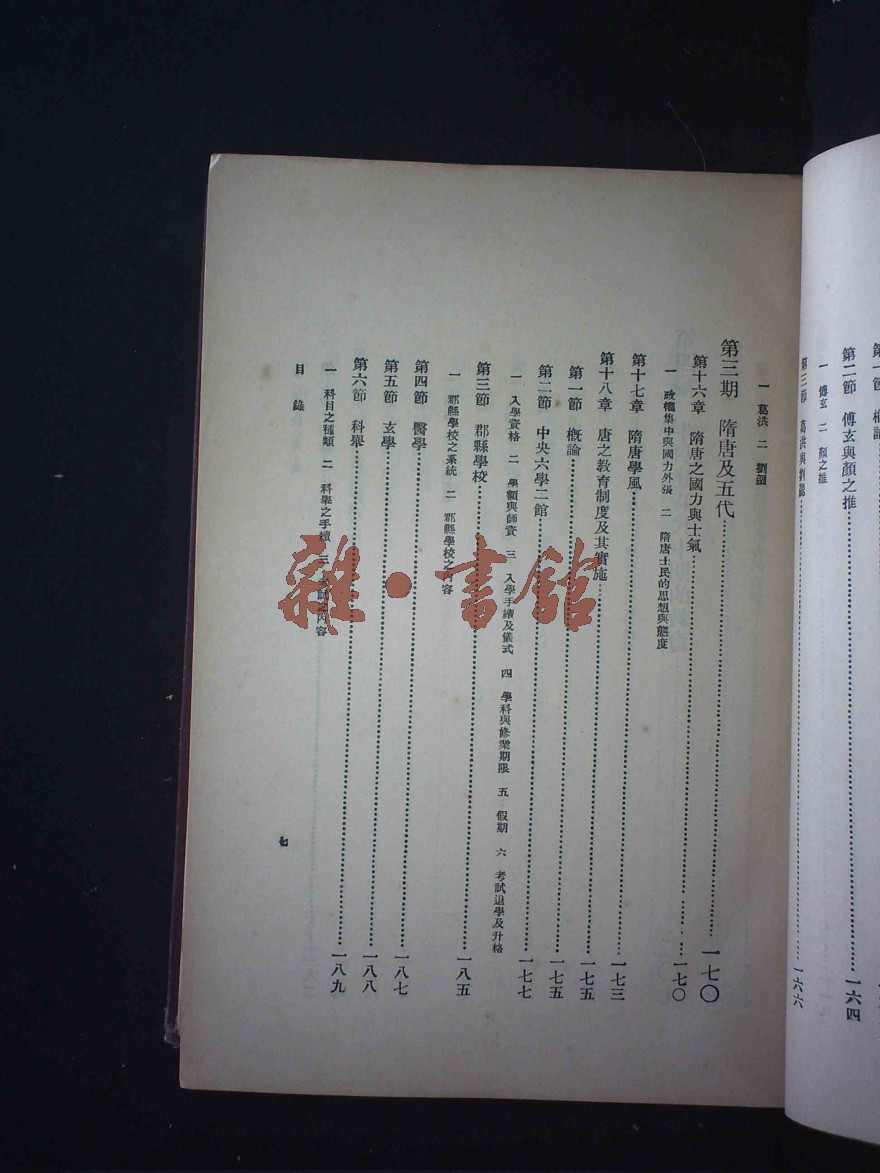 第一節 概論
第二節 傅玄與顏之推……一六四
一 傅玄 二 顏之推
第三節 葛洪與劉勰……一六六
一 葛洪 二 劉勰
第三期 隋唐及五代……一七〇
第十六章 隋唐之國力與士氣……一七〇
一 政權集中與國力外張 二 隋唐士民的思想與態度
第十七章 隋唐學風……一七三
第十八章 唐之教育制度及其實施……一七五
第一節 概論……一七五
第二節 中央六學二館……一七七
一 入學資格 二 學額與師資 三 入學手續及儀式 四 學科與修業期限 五 假期 六 考試退學及升格
第三節 郡縣學校……一八五
一 郡縣學校之系統 二 郡縣學校之內容
第四節 醫學……一八七
第五節 玄學……一八八
第六節 科舉……一八九
一 科目之種類 二 科舉之手續 三 考試之內容
目錄
七
雜·書館